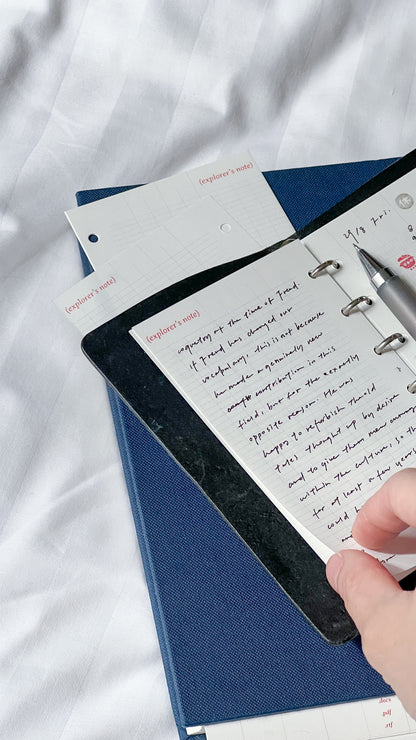 (explorer's note)
(explorer's note)
(explorer's note)
4/8 Fri.
coquetry at the time of Freud.
if Freud has changed our
vocabulary, this is not because
he made a genuinely new
contribution in this
field, but for the exactly
opposite reason. He was
happy to refurbish the old
tales thought up by desire
and to give them new names
within the culture, so th
for at least a few years
could b